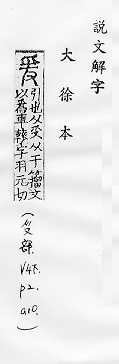 說文解字
大徐本
爰
引也从𠬪从于籀文
以為車轅字羽元切
(𠬪部.
V4下.
p2.
a10.)